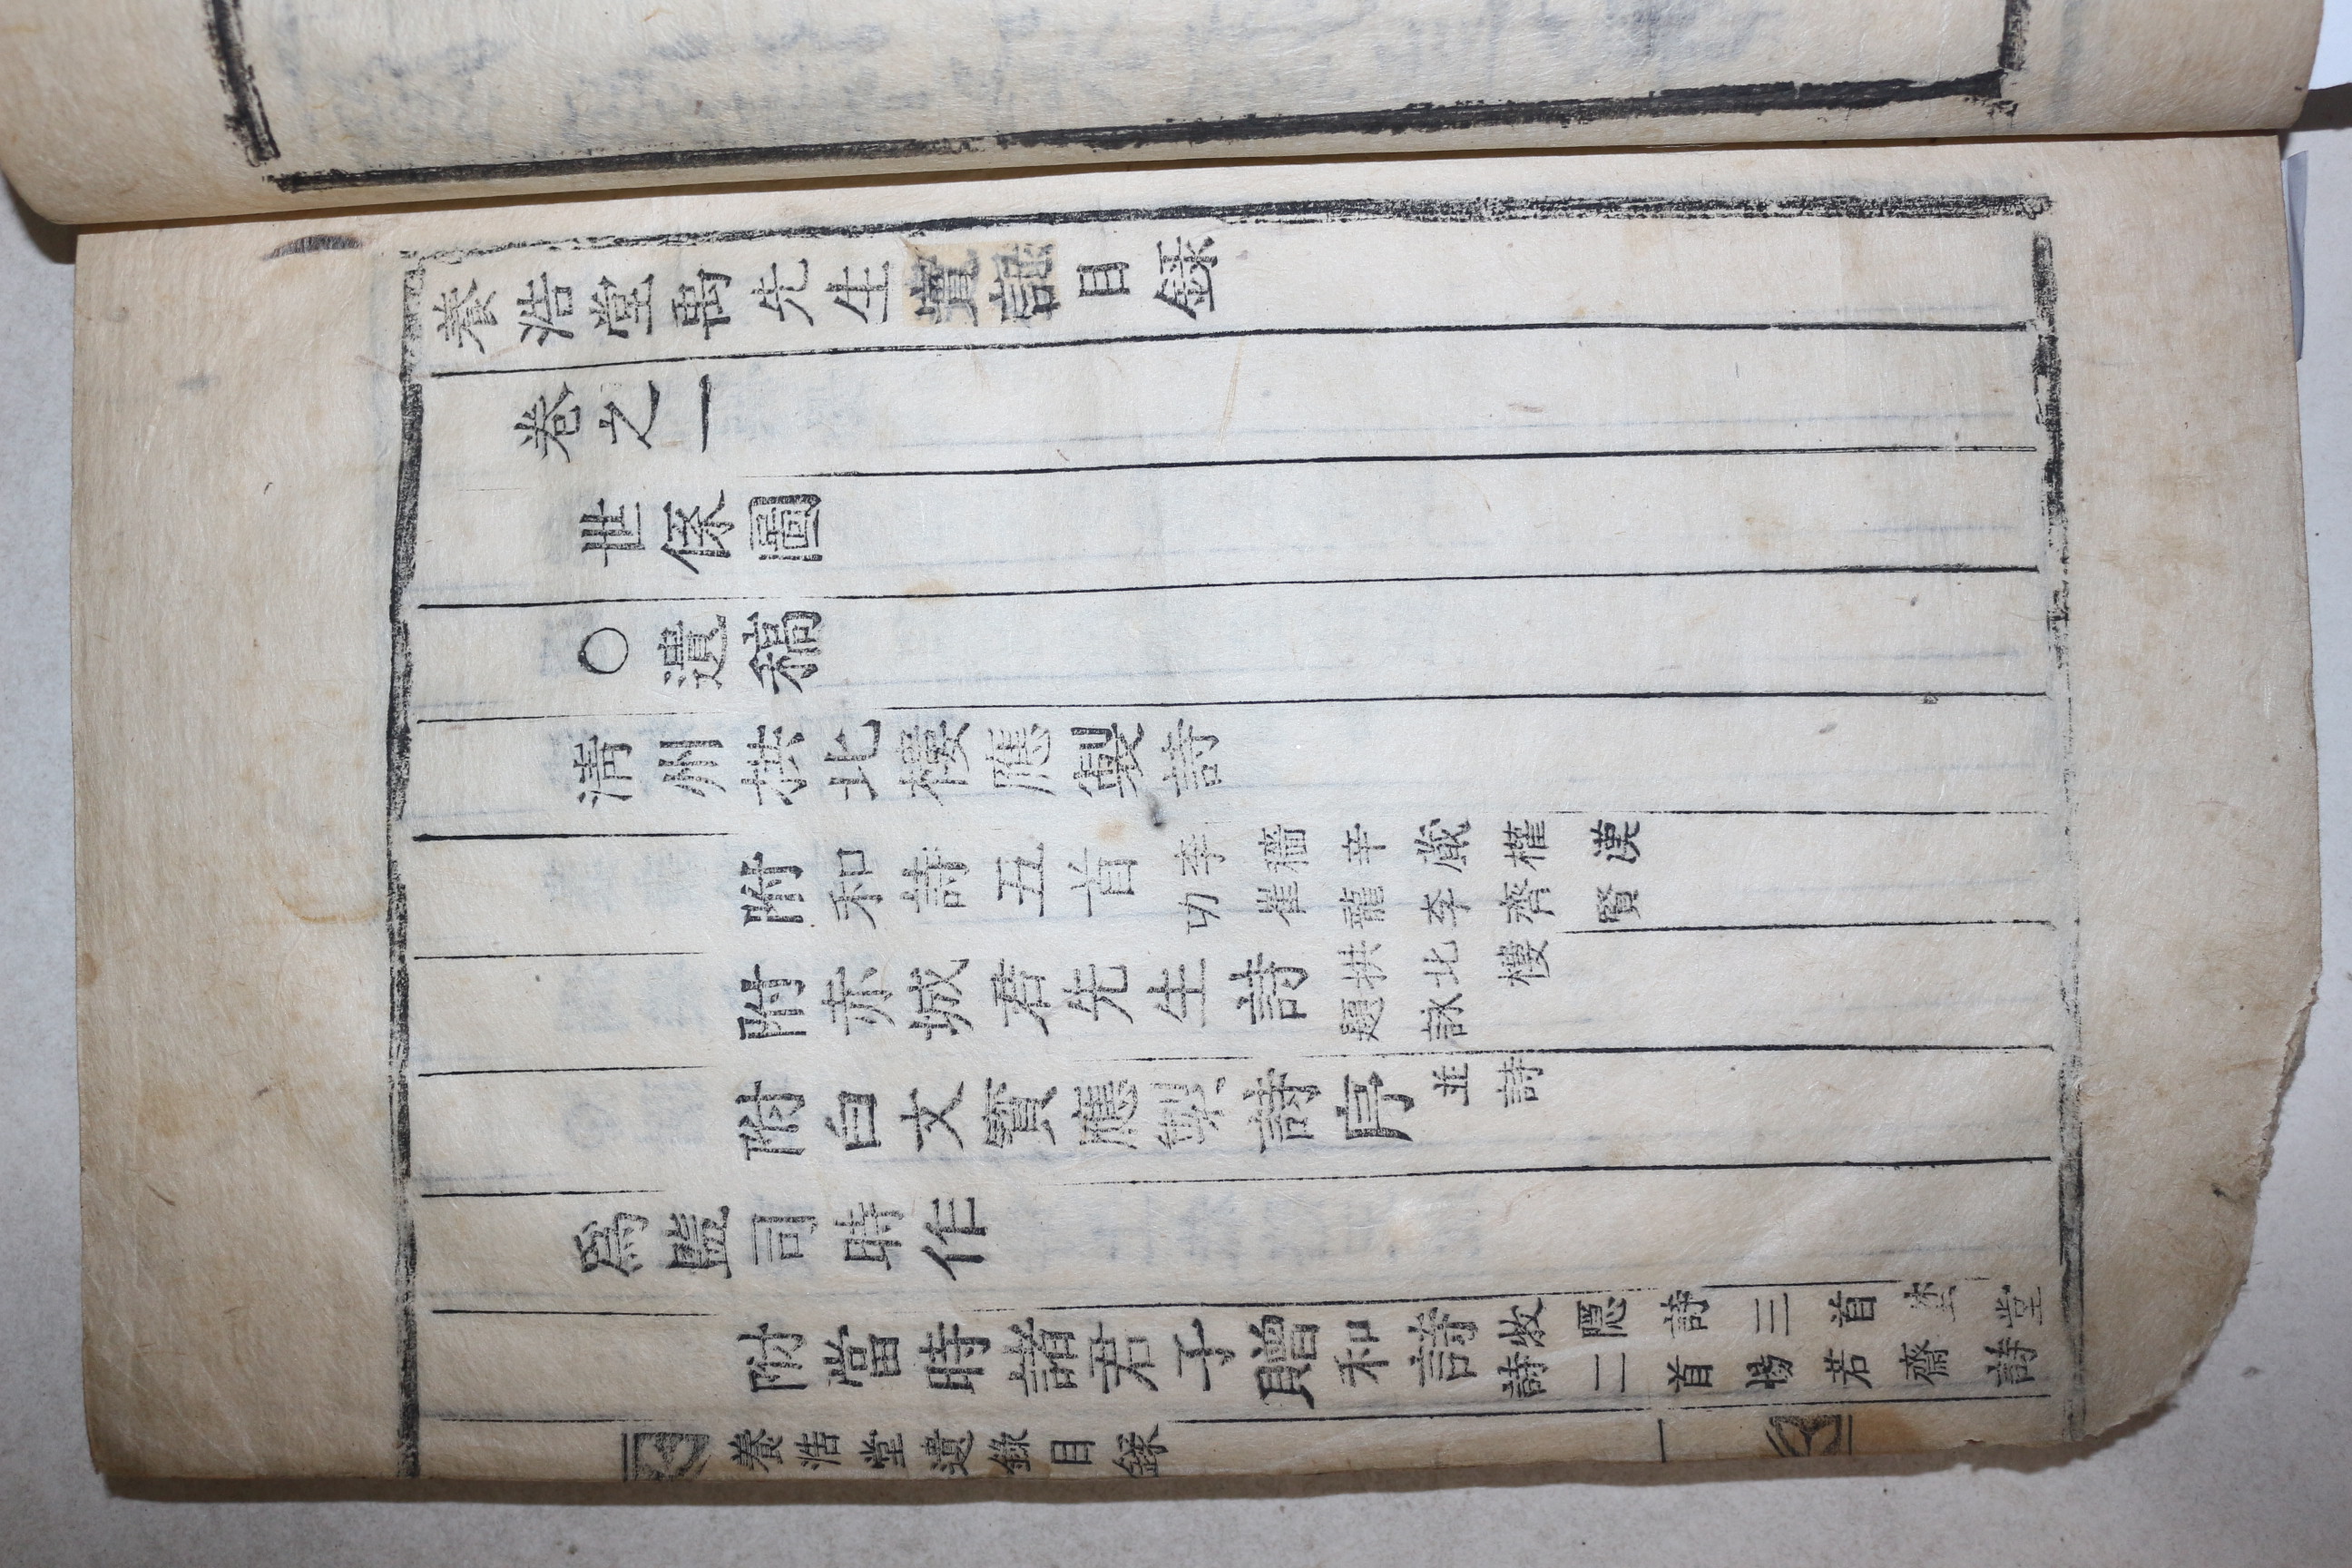 養浩堂禹先生實記目錄
卷之一
世係圖
○遺稿
清州拱北樓應製詩
附和詩五首 李穡辛蕆權漢功崔龍李齊賢
附赤城君先生詩 拱北樓題詠
附白文寶應製詩序 並詩
爲監司時作
附當時諸君子贈和詩 牧隱詩三首埜堂詩二首惕若齋詩
養浩堂遺錄目錄 一